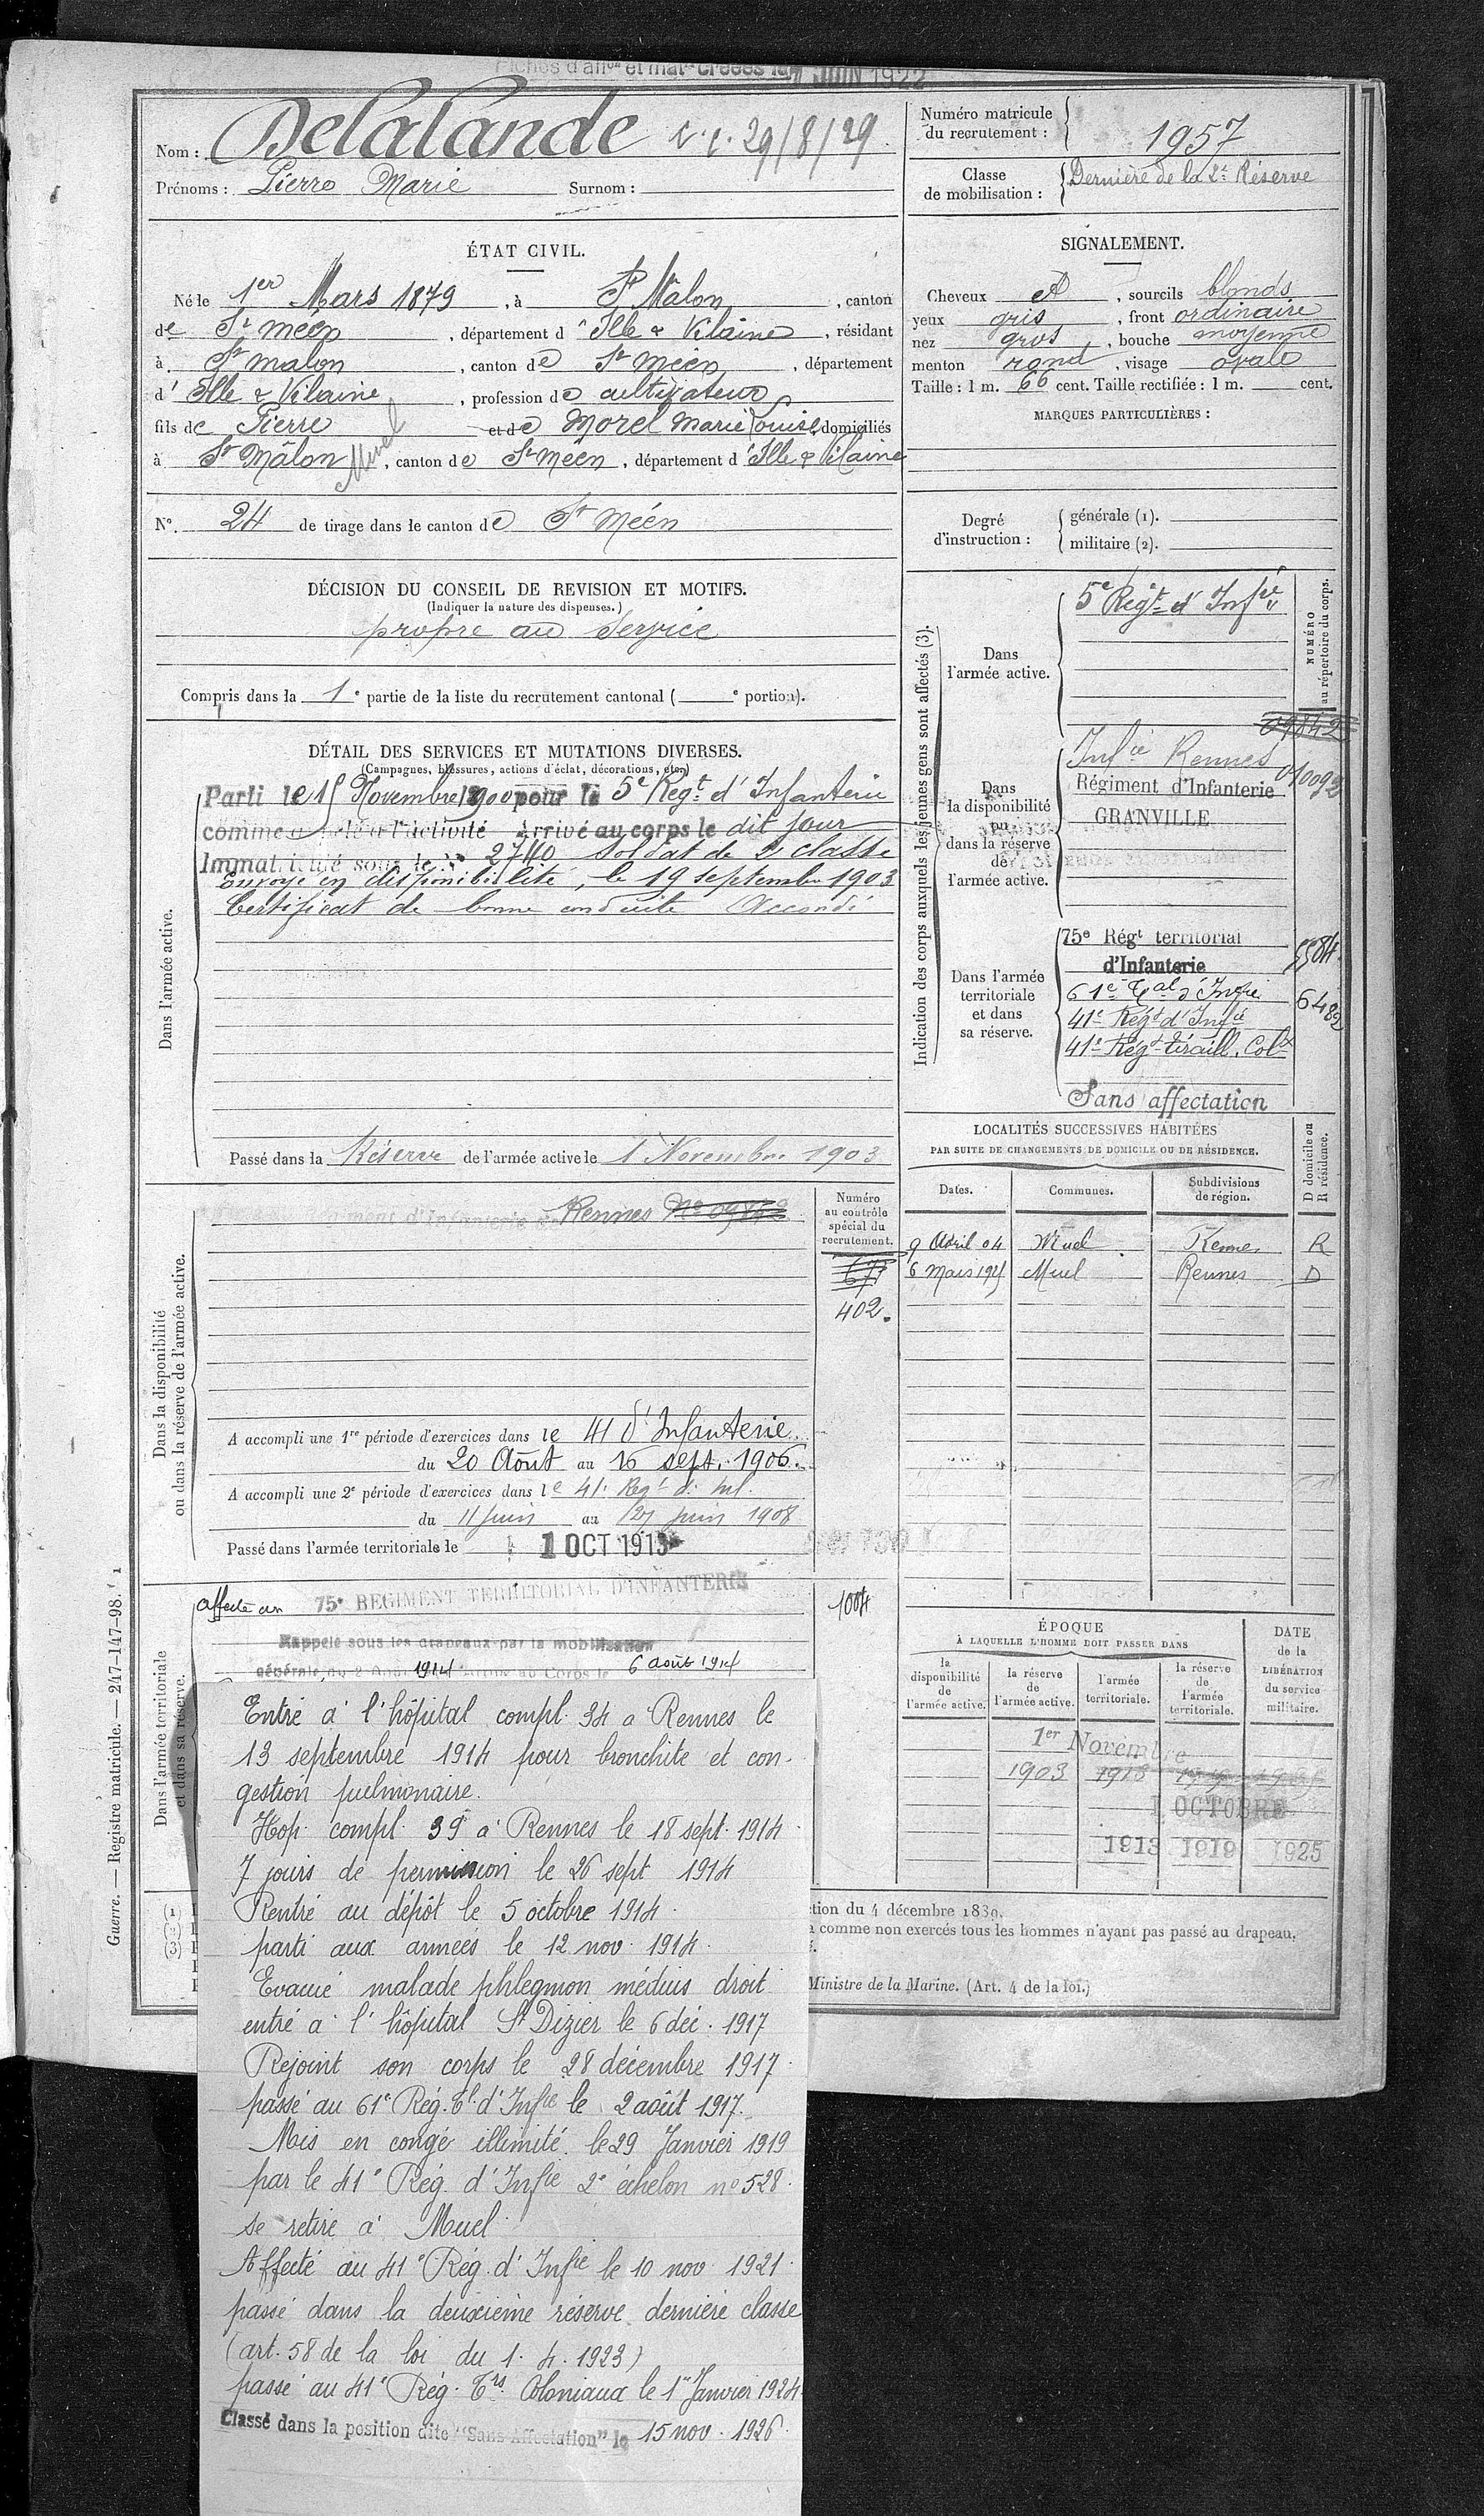 Fiches d'aff^on et mat^le créées le 1 JUIN 1922
Nom : Delalande 29/8/29
Prénoms : Pierre Marie Surnom :
Numéro matricule du recrutement : 1957
Classe de mobilisation : Dernière de la 2e Réserve
ÉTAT CIVIL.
Né le 1er Mars 1879, à St Mâlon, canton
de St Méen, département d'Ille & Vilaine, résidant
à St Malon, canton de St Méen, département
d'Ille & Vilaine, profession de cultivateur
fils de Pierre et de Morel Marie Louise, domiciliés
à St Mâlon Muel, canton de St Méen, département d'Ille & Vilaine
N° 24 de tirage dans le canton de St Méen
SIGNALEMENT.
Cheveux et, sourcils blonds
yeux gris, front ordinaire
nez gros, bouche moyenne
menton rond, visage ovale
Taille : 1 m. 66 cent. Taille rectifiée : 1 m. cent.
MARQUES PARTICULIÈRES :
Degré d'instruction : générale (1).
militaire (2).
DÉCISION DU CONSEIL DE REVISION ET MOTIFS.
(Indiquer la nature des dispenses.)
propre au Service
Compris dans la 1e partie de la liste du recrutement cantonal ( e portion).
DÉTAIL DES SERVICES ET MUTATIONS DIVERSES.
(Campagnes, blessures, actions d'éclat, décorations, etc.)
Dans l'armée active.
Parti le 15 Novembre 1900 pour le 5e Régt d'Infanterie
comme appelé à l'activité Arrivé au corps le dit jour
Immatriculé sous le n° 2740 Soldat de 2e classe
Envoyé en disponibilité, le 19 septembre 1903
Certificat de bonne conduite Accordé
Passé dans la Réserve de l'armée active le 1 Novembre 1903
Indication des corps auxquels les jeunes gens sont affectés (3).
NUMÉRO au répertoire du corps.
Dans l'armée active.
5e Régt d'Infie
09842
Dans la disponibilité ou dans la réserve de l'armée active.
Infie Rennes
Régiment d'Infanterie 010092
GRANVILLE
Dans l'armée territoriale et dans sa réserve.
75e Régt territorial
d'Infanterie 5584
61e Tal d'Infie 6482
41e Régt d'Infie
41e Régt tiraill. Colx
Sans affectation
LOCALITÉS SUCCESSIVES HABITÉES
PAR SUITE DE CHANGEMENTS DE DOMICILE OU DE RÉSIDENCE.
D domicile ou R résidence.
Dates. Communes. Subdivisions de région.
9 Avril 04 Muel Rennes R
6 Mars 1925 Muel Rennes D
Dans la disponibilité ou dans la réserve de l'armée active.
Régiment d'Infanterie de Rennes
Numéro au contrôle spécial du recrutement.
671
402.
A accompli une 1re période d'exercices dans le 41 d'Infanterie
du 20 Août au 16 sept. 1906.
A accompli une 2e période d'exercices dans le 41e Régt d'Inf.
du 11 juin au 27 juin 1908
Passé dans l'armée territoriale le 1 OCT 1913
Dans l'armée territoriale et dans sa réserve.
affecté au 75e RÉGIMENT TERRITORIAL D'INFANTERIE 1004
Rappelé sous les drapeaux par la mobilisation
générale du 2 Août 1914 Arrivé au Corps le 6 août 1914
Entré à l'hôpital compl. 34 à Rennes le
13 septembre 1914 pour bronchite et con-
gestion pulmonaire.
Hop. compl. 39 à Rennes le 18 sept. 1914
7 jours de permission le 26 sept 1914
Rentré au dépôt le 5 octobre 1914.
parti aux armées le 12 nov. 1914.
Evacué malade phlegmon médius droit
entré à l'hôpital St Dizier le 6 déc. 1917
Rejoint son corps le 28 décembre 1917.
passé au 61e Rég. Tl. d'Infie le 2 août 1917.
Mis en congé illimité le 29 Janvier 1919
par le 41e Rég. d'Infie 2e échelon no 528.
se retire à Muel
Affecté au 41e Rég. d'Infie le 10 nov. 1921.
passé dans la deuxième réserve dernière classe
(art. 58 de la loi du 1. 4. 1923)
passé au 41e Rég. Trs Coloniaux le 1er Janvier 1924.
Classé dans la position dite "Sans Affectation" le 15 nov. 1926.
ÉPOQUE
À LAQUELLE L'HOMME DOIT PASSER DANS
DATE de la LIBÉRATION du service militaire.
la disponibilité de l'armée active. la réserve de l'armée active. l'armée territoriale. la réserve de l'armée territoriale.
1er Novembre
1903 1913
1 OCTOBRE
1913 1919 1925
(1)
(2)
(3)
tion du 4 décembre 1889.
comme non exercés tous les hommes n'ayant pas passé au drapeau.
Ministre de la Marine. (Art. 4 de la loi.)
Guerre. — Registre matricule. — 247-147-98.